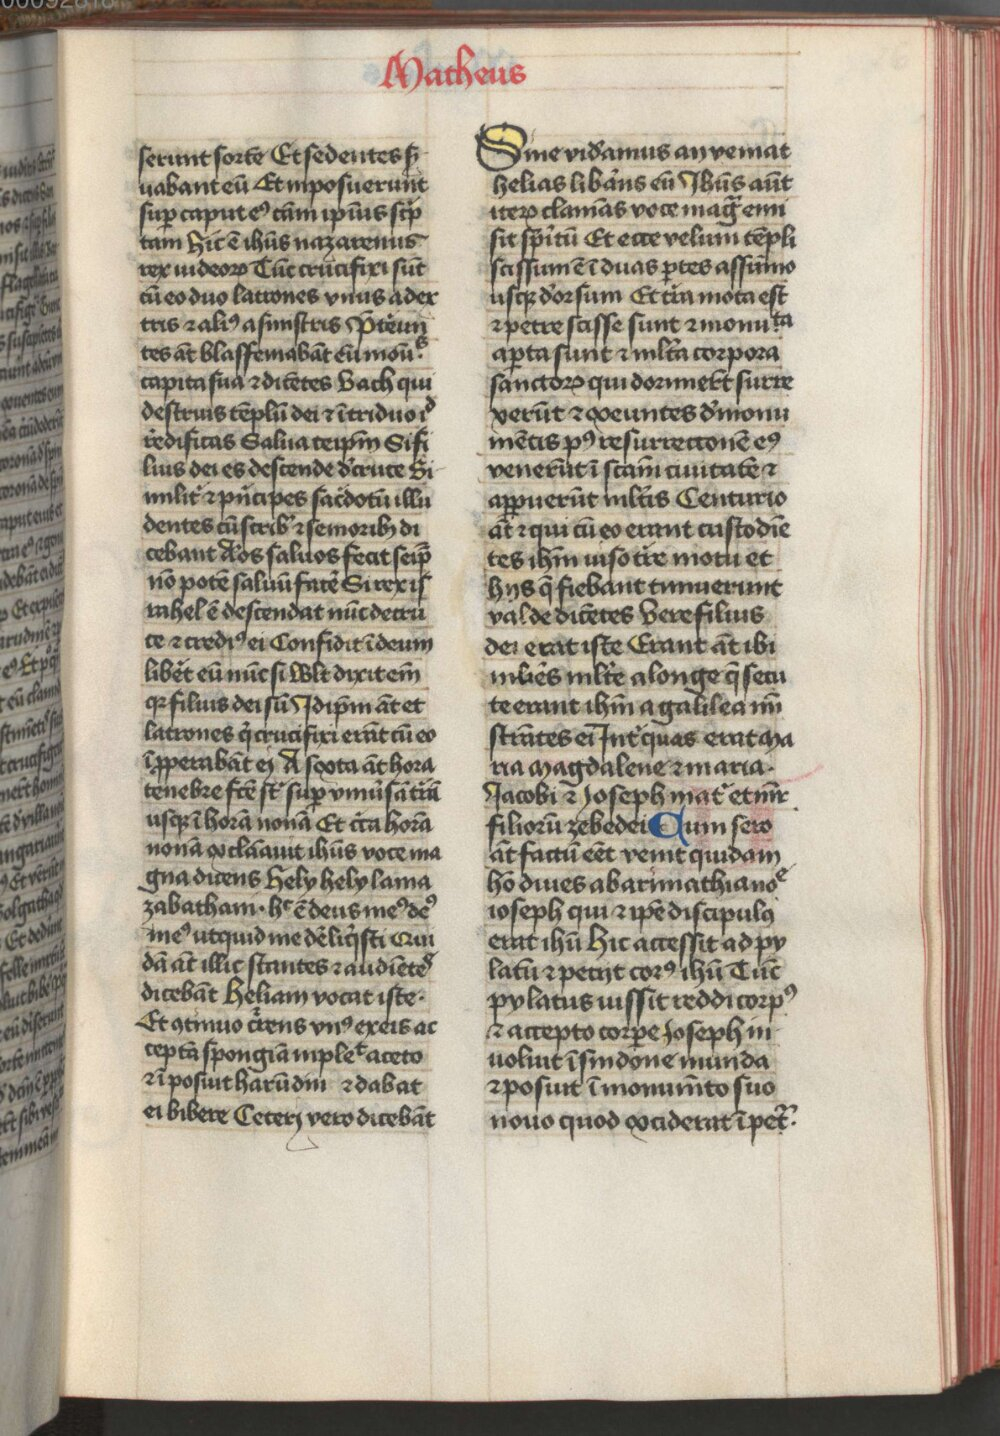 Matheus
serunt sorte Et sedentes ẜ
uabant eū Et inposuerunt
sup̱ caput eꝰ cām ip̄ius sc̄p
tam Hic ē ih̄us nazarenus
rex iudeoꝝ Tūc crucifixi sūt
cū eo duo latrones vnus a dex
tris ⁊ aliꝰ a sinistris P̄teriun
tes āt blasfemabāt eū mouē̄s
capita sua ⁊ dicētes Vach qui
destruis tēplū dei ⁊ ī triduo id
redificas Salua teip̄m Si fi
lius dei es descende d̓cruce Si
milit̓ ⁊ pn̄cipes sac̓dotū illu
dentes cū scrib̓ ⁊ seniorib; di
cebant Alios saluos fecit seip̄
nō potē saluū facē Si rex is
rahel ē descendat nūc de cru
ce ⁊ crediꝰ ei Confidit ī deum
liberet eū nūc si wlt dixit em̄
qꝛ filius dei sū Idip̄m āt et
latrones q̇ crucifixi erāt cū eo
īpperabāt ei A sexta āt hora
tenebre fcē st̄ sup̱ vniu̓sā tr̄ā
usqꝫ ī horā nonā Et c̓ca horā
nonā exclāauit ih̄us voce ma
gna dicens Hely hely lama
zabathani. hͨ ē deus meꝰ deꝰ
meꝰ utquid me dēliq̇sti Qui
dā āt illic stantes ⁊ audiētes
dicebāt Heliam vocat iste.
Et ꝯtinuo cr̄rens vnꝰ ex eis ac
ceptā spongiā inpleͭ aceto
⁊ īposuit harūdini ⁊ dabat
ei bibere Ceteri vero dicebāt
Sine videamus an veniat
helias libāns eū Ih̄us aūt
iteꝝ clamās voce mag̃ emi
sit sp̄itū Et ecce velum tēpli
scissum ē ī duas ꝑtes a ssūmo
usqꝫ d̓orsum Et tr̄a mota est
⁊ petre scisse sunt ⁊ monuᵗᵃ
aꝑta sunt ⁊ ml̄ta corpora
sanctoꝝ qui dormieꝛt surre
xerūt ⁊ exeuntes d̓ monu
mētis pꝰ resurrectionē eꝰ
venerūt ī sc̄am ciuitatē ⁊
apꝑuerūt ml̄tis Centurio
āt ⁊ qui cū eo erant custodiē
tes ih̄m uiso tr̄e motu et
hijs q̄ fiebant timuerunt
valde dicētes Vere filius
dei erat iste Erant āt ibi
ml̄ies ml̄te a longe q̄ secu
te erant ih̄m a galilea mi̓
strātes ei Int̓ quas erat ma
ria magdalene ⁊ maria.
Jacobi ⁊ Joseph mat̓ et m̄r
filiorū zebedei Cum sero
āt factū eēt venit quidam
hō diues ab arimathia noᵉ
ioseph qui ⁊ ip̄e discipulꝰ
erat ih̄u Hic accessit ad py
latū ⁊ petijt corꝰ ih̄u Tūc
pylatus iussit reddi corpꝰ
⁊ accepto corꝑe Joseph in
uoluit ī sindone munda
⁊ posuit ī monum̄to suo
nouo quod exciderat ī pet̄.